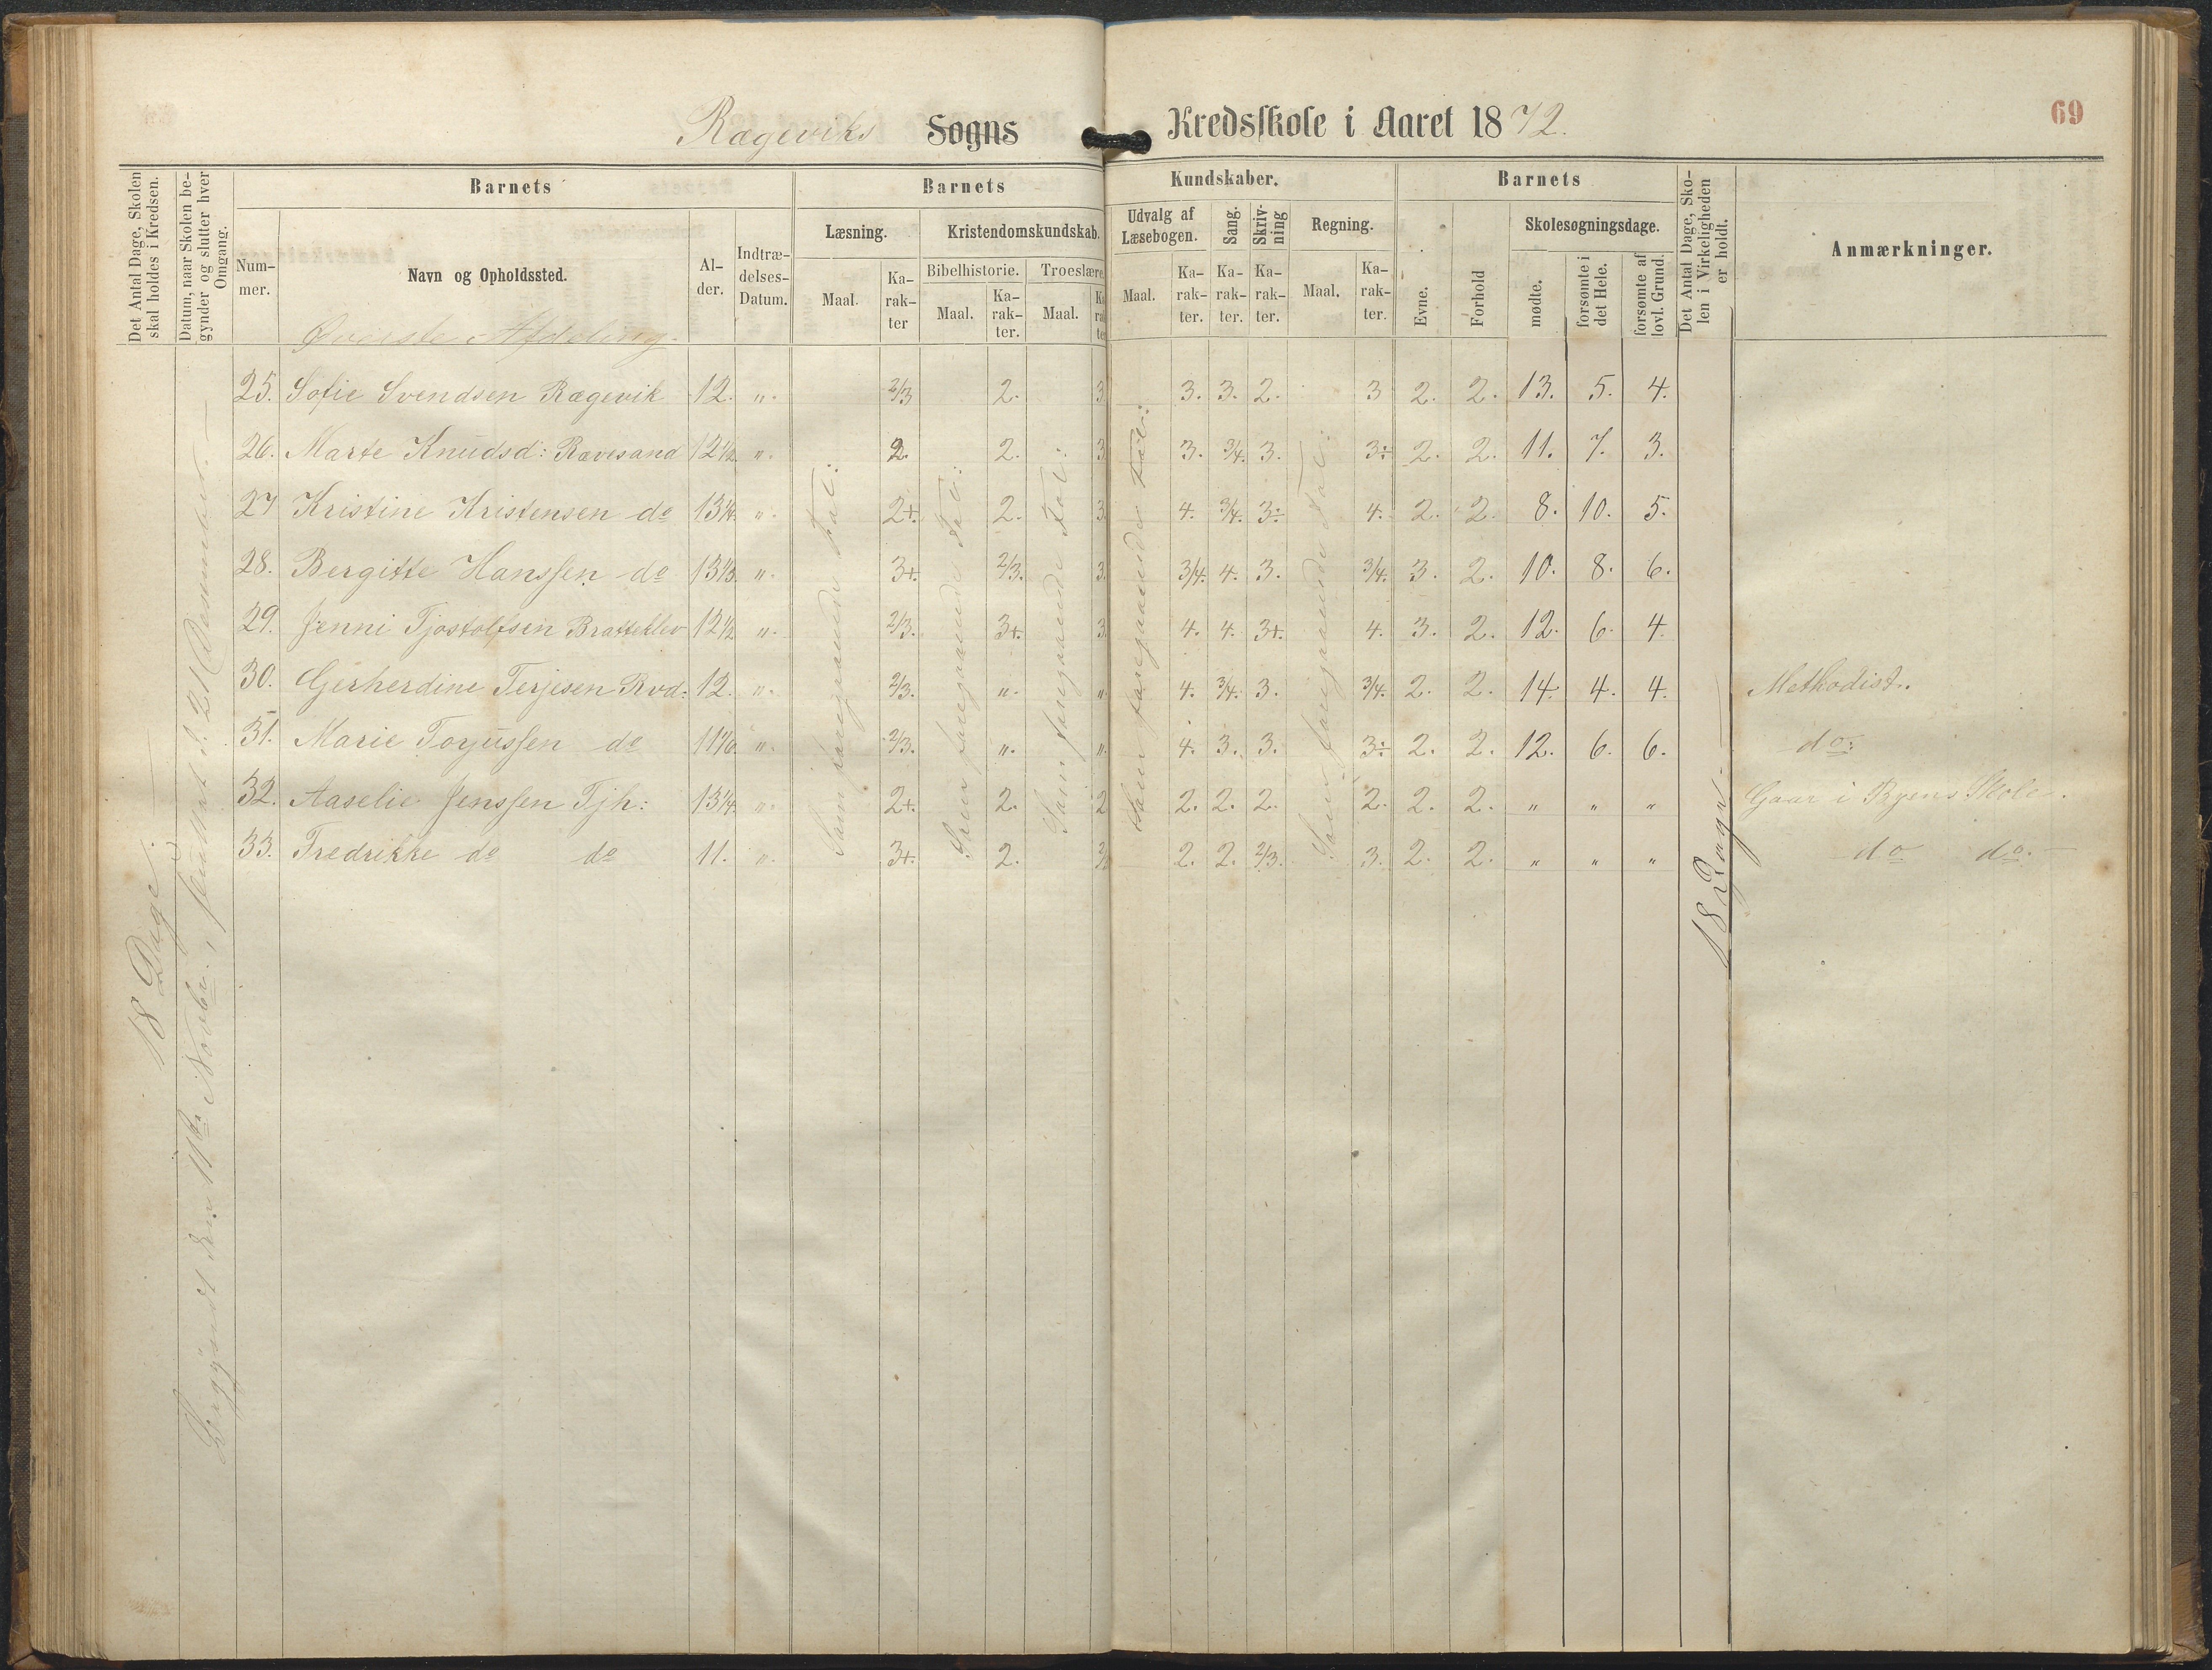 Rægeviks Sogns Kredsskole i Aaret 1872.
69
Det Antal Dage, Skolen skal holdes i Kredsen.
Datum, naar Skolen begynder og slutter hver Omgang.
Barnets
Barnets
Kundskaber.
Barnets
Det Antal Dage, Skolen i Virkeligheden er holdt.
Anmærkninger.
Nummer.
Navn og Opholdssted.
Alder.
Indtrædelses-Datum.
Læsning.
Kristendomskundskab.
Udvalg af Læsebogen.
Sang.
Skrivning
Regning.
Evne.
Forhold
Skolesøgningsdage.
Maal.
Karakter
Bibelhistorie.
Troeslære
Maal.
Karakter.
Maal.
Maal.
Karakter.
Karakter.
Karakter.
Maal.
Karakter.
mødte.
forsømte i det Hele.
forsømte af lovl. Grund.
Øverste Afdeling.
25. Sofie Svendsen Rægevik 12. " 2/3 2. 3 3. 3. 2. 3 2. 2. 13. 5. 4.
26. Marte Knudsd: Rævesand 12 1/2. " 2. 2. 3 3. 3/4. 3. 3÷ 2. 2. 11. 7. 3.
27 Kristine Kristensen do 13 1/4. " 2+. 2. 3. 4. 3/4. 3÷ 4. 2. 2. 8. 10. 5.
28. Bergitte Hanssen do 13 1/3. " 3+. 2/3. 3. 3/4. 4. 3. 3/4. 3. 2. 10. 8. 6.
29. Jenni Tjostolfsen Bratteklev 12 1/2 " 2/3. 3+. 3. 4. 4. 3+. 4. 3. 2. 12. 6. 4.
30. Gerherdine Terjesen Rvd. 12. " 2/3. " " 4. 3/4. 3. 3/4. 2. 2. 14. 4. 4. Methodist.
31. Marie Torjussen do 11 1/6. " 2/3. " " 4. 3. 3. 3÷ 2. 2. 12. 6. 6. do:
32. Aaselie Jenssen Tjh: 13 1/4. " 2+. 2. 2 2. 2. 2. 2. 2. 2. " " " Gaar i Byens Skole.
33. Fredrikke do do 11. " 3+. 2. 2. 2. 2/3. 3. 2. 2. " " " do do.
18 Dage.
Begyndt den 11te Novbr., sluttet d. 21 Desember.
Som foregaaende Tal:
Som foregaaende Tal:
Som foregaaende Tal:
Som foregaaende Tal:
Som foregaaende Tal:
18 Dage